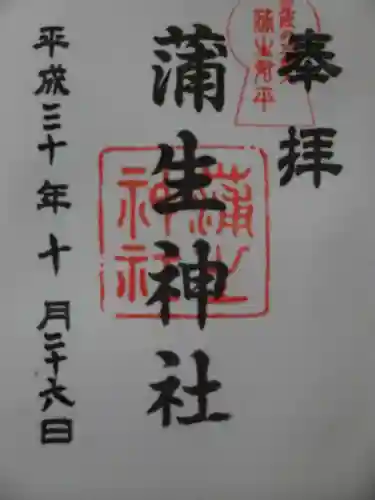 奉拝
蒲生君平
蒲生神社
蒲生神社
平成三十年十月二十六日